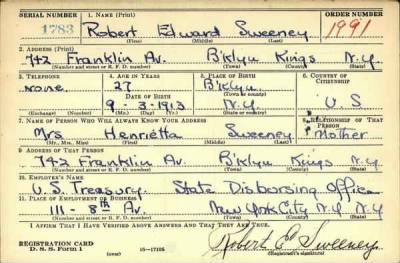 SERIAL NUMBER 1. NAME (Print) ORDER NUMBER
1783 Robert Edward Sweeney 1991
(First) (Middle) (Last)
2. ADDRESS (Print)
742 Franklin Av. B'klyn Kings N.Y.
(Number and street or R. F. D. number) (Town) (County) (State)
3. TELEPHONE 4. AGE IN YEARS 5. PLACE OF BIRTH 6. COUNTRY OF CITIZENSHIP
none. 27 B'klyn
DATE OF BIRTH (Town or county)
9-3-1913 N.Y. U S
(Exchange) (Number) (Mo.) (Day) (Yr.) (State or country)
7. NAME OF PERSON WHO WILL ALWAYS KNOW YOUR ADDRESS 8. RELATIONSHIP OF THAT PERSON
Mrs Henrietta Sweeney Mother
(Mr., Mrs., Miss) (First) (Middle) (Last)
9. ADDRESS OF THAT PERSON
742 Franklin Av. B'klyn Kings N.Y
(Number and street or R. F. D. number) (Town) (County) (State)
10. EMPLOYER'S NAME
U.S. Treasury. State Disbursing Office
11. PLACE OF EMPLOYMENT OR BUSINESS
111- 8th Av. New York City N.Y N.Y.
(Number and street or R. F. D. number) (Town) (County) (State)
I AFFIRM THAT I HAVE VERIFIED ABOVE ANSWERS AND THAT THEY ARE TRUE.
REGISTRATION CARD
D. S. S. Form 1 (over) 16-17105 Robert E. Sweeney
(Registrant's signature)